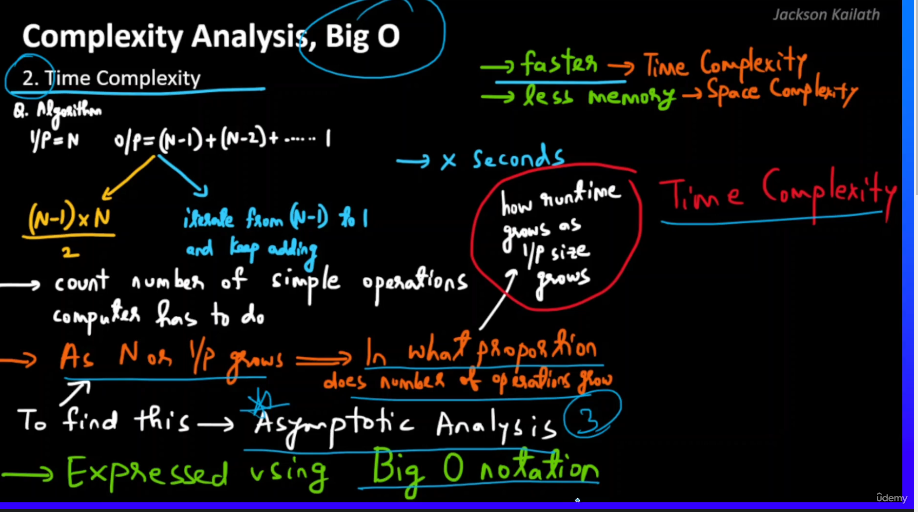 Jackson Kailath
Complexity Analysis, Big O
→ faster → Time Complexity
2. Time Complexity
→ less memory → Space Complexity
Q. Algorithm
I/P = N O/P = (N-1) + (N-2) + ...... 1
→ x seconds
(N-1) x N
2
iterate from (N-1) to 1
and keep adding
how runtime
grows as
I/P size
grows
Time Complexity
→ count number of simple operations
computer has to do
→ As N or I/P grows ⟹ In what proportion
does number of operations grow
To find this → Asymptotic Analysis 3
→ Expressed using Big O notation
ûdemy